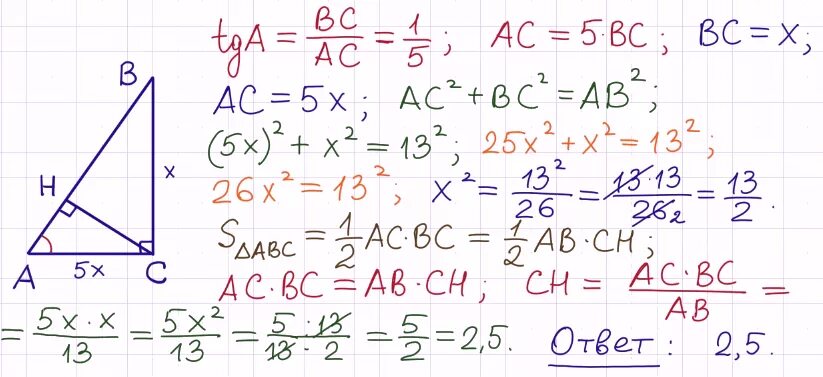 tgA = BC/AC = 1/5; AC = 5·BC; BC = x;
AC = 5x; AC² + BC² = AB²;
(5x)² + x² = 13²; 25x² + x² = 13²;
26x² = 13²; x² = 13²/26 = 13·13/26 2 = 13/2.
S△ABC = 1/2 AC·BC = 1/2 AB·CH;
AC·BC = AB·CH; CH = AC·BC/AB =
= 5x·x/13 = 5x²/13 = 5·13/13·2 = 5/2 = 2,5. Ответ: 2,5.
B
x
H
A
5x
C